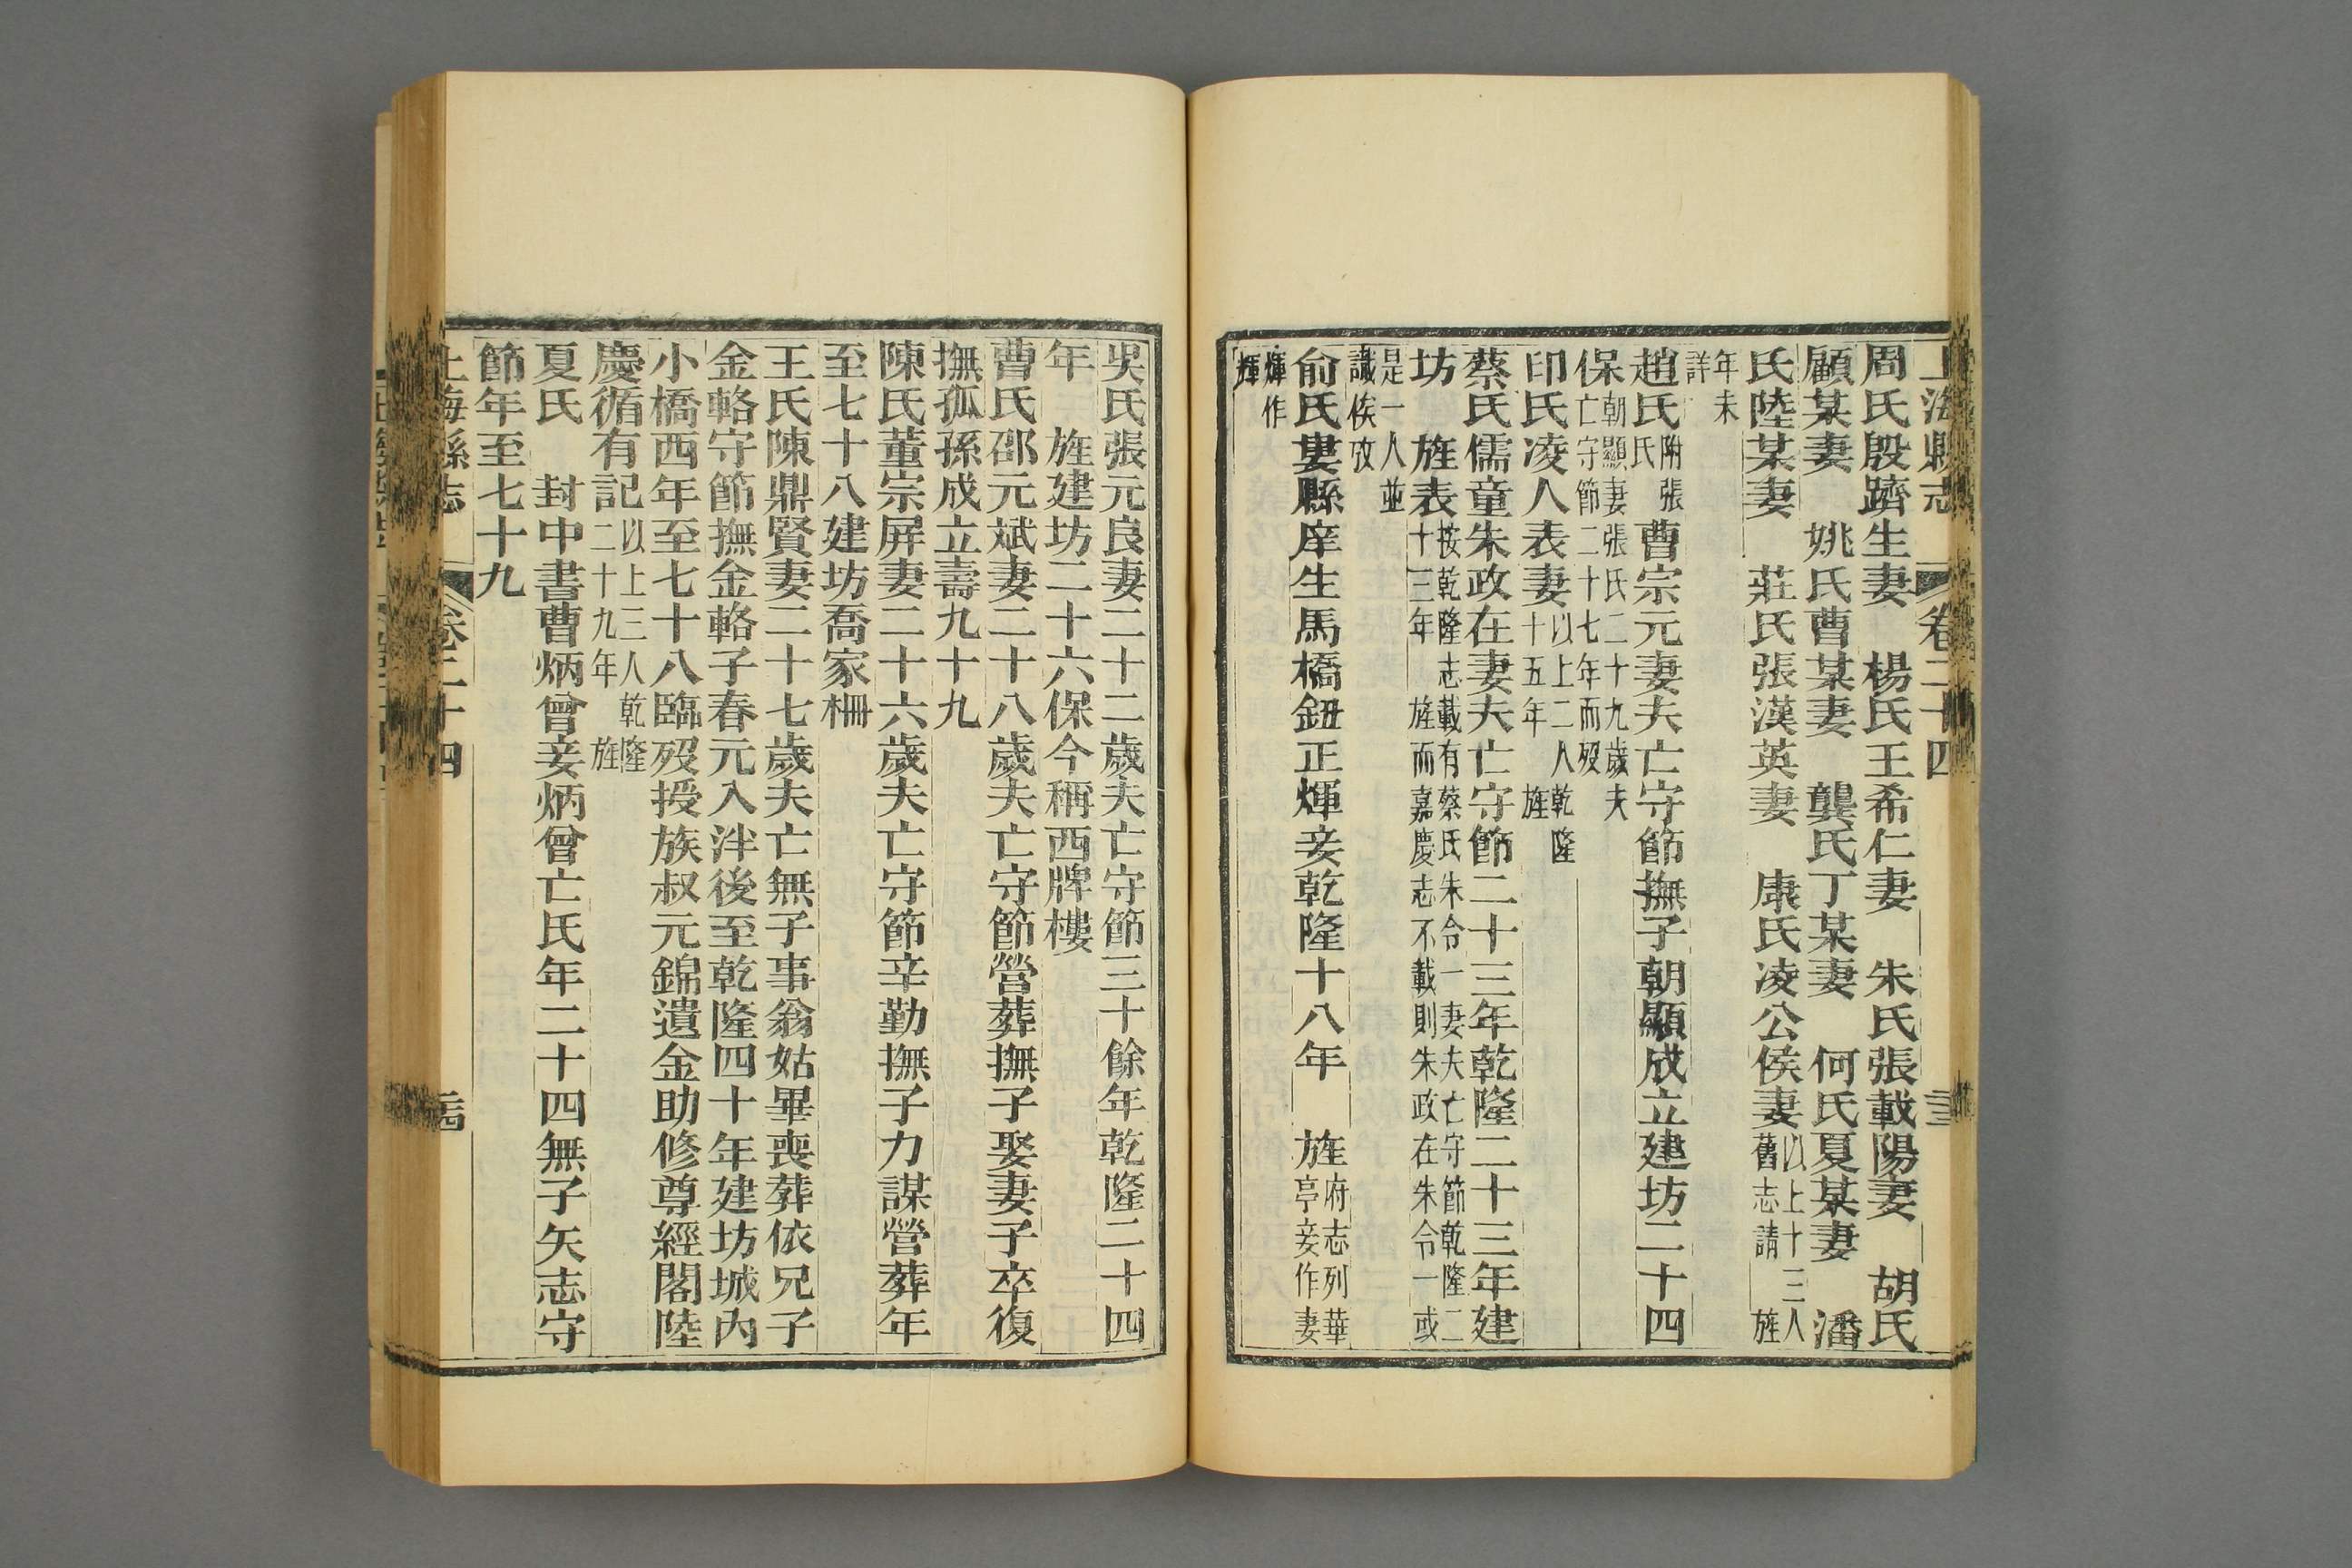 上海縣志 卷二十四
周氏殷躋生妻 楊氏王希仁妻 朱氏張載陽妻 胡氏
顧某妻 姚氏曹某妻 龔氏丁某妻 何氏夏某妻 潘
氏陸某妻 莊氏張漢英妻 康氏凌公侯妻以上十三人舊志請 旌
年未詳
趙氏附張氏 曹宗元妻夫亡守節撫子朝顯成立建坊二十四
保朝顯妻張氏二十九歲夫亡守節二十七年而歿
印氏凌人表妻以上二人乾隆十五年 旌
蔡氏儒童朱政在妻夫亡守節二十三年乾隆二十三年建
坊 旌表按乾隆志載有蔡氏朱令一妻夫亡守節乾隆二十三年 旌而嘉慶志不載則朱政在朱令一或
是一人並識俟攷
俞氏婁縣庠生馬橋鈕正煇妾乾隆十八年 旌府志列華亭妾作妻
煇作輝
吳氏張元良妻二十二歲夫亡守節三十餘年乾隆二十四
年 旌建坊二十六保今稱西牌樓
曹氏邵元斌妻二十八歲夫亡守節營葬撫子娶妻子卒復
撫孤孫成立壽九十九
陳氏董宗屏妻二十六歲夫亡守節辛勤撫子力謀營葬年
至七十八建坊喬家柵
王氏陳鼎賢妻二十七歲夫亡無子事翁姑畢喪葬依兄子
金輅守節撫金輅子春元入泮後至乾隆四十年建坊城內
小橋西年至七十八臨歿授族叔元錦遺金助修尊經閣陸
慶循有記以上三人乾隆二十九年 旌
夏氏 封中書曹炳曾妾炳曾亡氏年二十四無子矢志守
節年至七十九
上海縣志 卷二十四